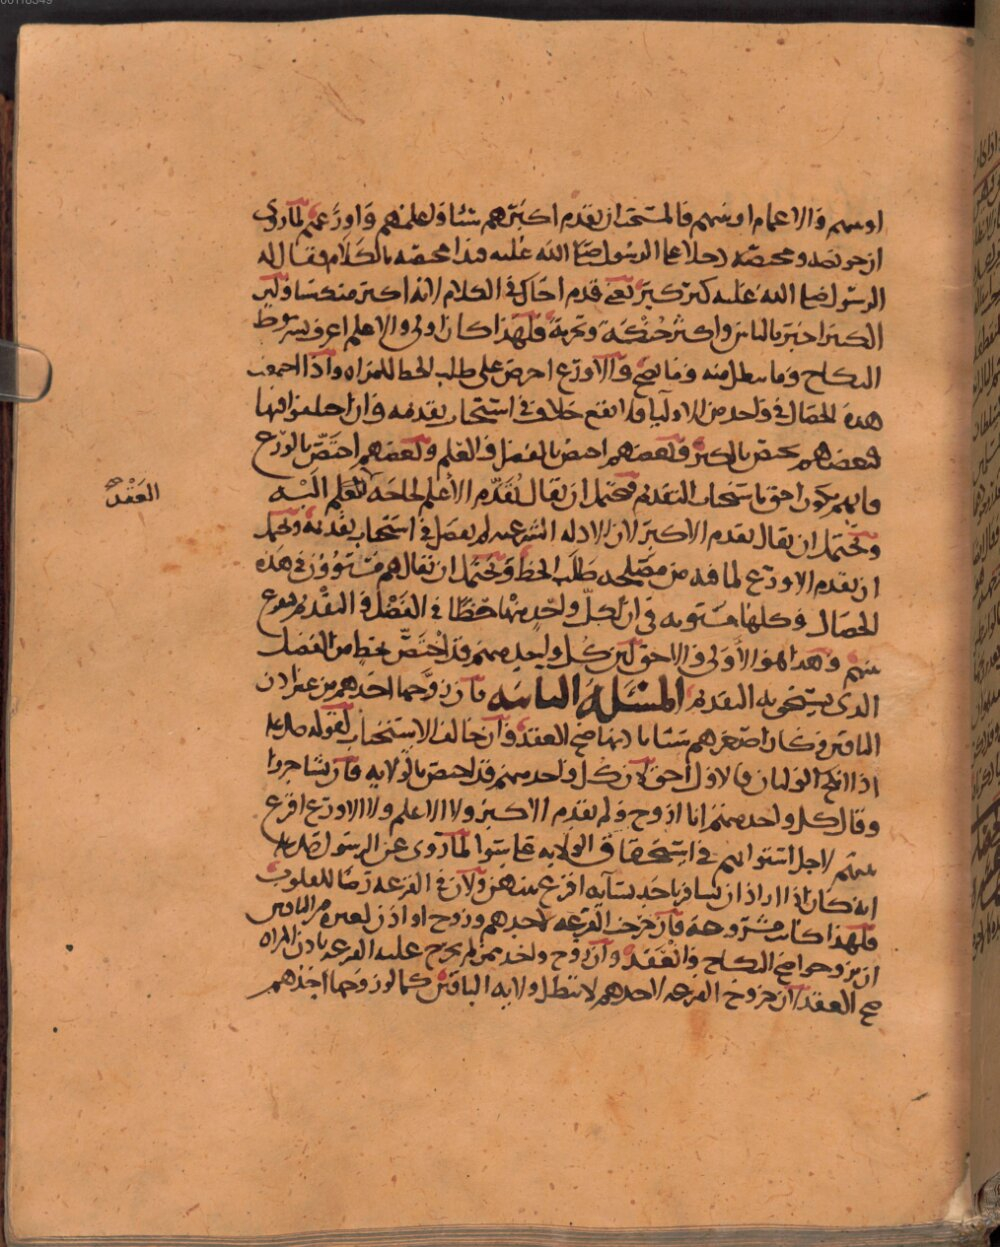 او بنيهم والاعمام او بنيهم فالمستحب ان يقدم اكبرهم سنا واعلمهم واورعهم لما روى
ان حويصه ومحيصه دخلا على الرسول صلى الله عليه فبدا محيصه بالكلام فقال له
الرسول صلى الله عليه كبر كبر يعني قدم اخاك في الكلام لانه اكبر منك سنا ولان
الكبير اخبر بالناس واكثر حنكة وتجربة فلهذا كان اولى والاعلم اعرف بشروط
النكاح وما يبطل منه وما يصح والاورع احرص على طلب الحظ للمراه واذا اجتمعت
هذه الخصال في واحد من الاوليا فلا يقع خلاف في استحباب تقديمه وان اختلفوا فيها
فبعضهم يختص بالكبر وبعضهم اختص بالفضل في العلم وبعضهم اختص بالورع
فايهم يكون احق باستحباب التقديم فيحتمل ان يقال يقدم الأعلم لحاجة العلم اليه
العقد
ويحتمل ان يقال يقدم الاكبر لان الادله الشرعيه لم يفصل في استحباب تقديمه ويحتمل
ان يقدم الاورع لما فيه من مصلحه طلب الحظ ويحتمل ان يقال هم مستوون في هذه
الخصال وكلها مستويه في ان لكل واحد منها حظا في الفضل في التقديم فيقرع
بينهم وهذا هو الأولى والاحق لان كل واحد منهم قد اختص بخط من الفضل
الذي يستحق به التقديم المسئلة الثانيه فان زوجها احدهم من غير اذن
الباقين وكان اصغرهم سنا باذنها صح العقد وان خالف الاستحباب لقوله صلى الله عليه
اذا انكح الوليان فالاول احق لان كل واحد منهم قد اختص بالولايه فان تشاجروا
وقال كل واحد منهم انا ازوج ولم يقدم الاكبر ولا الاعلم ولا الاورع اقرع
بينهم لاجل استوائهم في استحقاق الولايه لما روى عن الرسول صلى الله عليه
انه كان اذا اراد ان يسافر باحد نسآئه اقرع بينهن ولان في القرعه رضا للقلوب
فلهذا كانت مشروعة فان خرجت القرعه لاحدهم وزوج او اذن لغيره من الباقين
ان يزوجوا صح النكاح وانعقد وان زوج واحد ممن لم يخرج عليه القرعه باذن المراه
صح العقد لان خروج القرعه لاحدهم لا تبطل ولايه الباقين كما لو زوجها احدهم